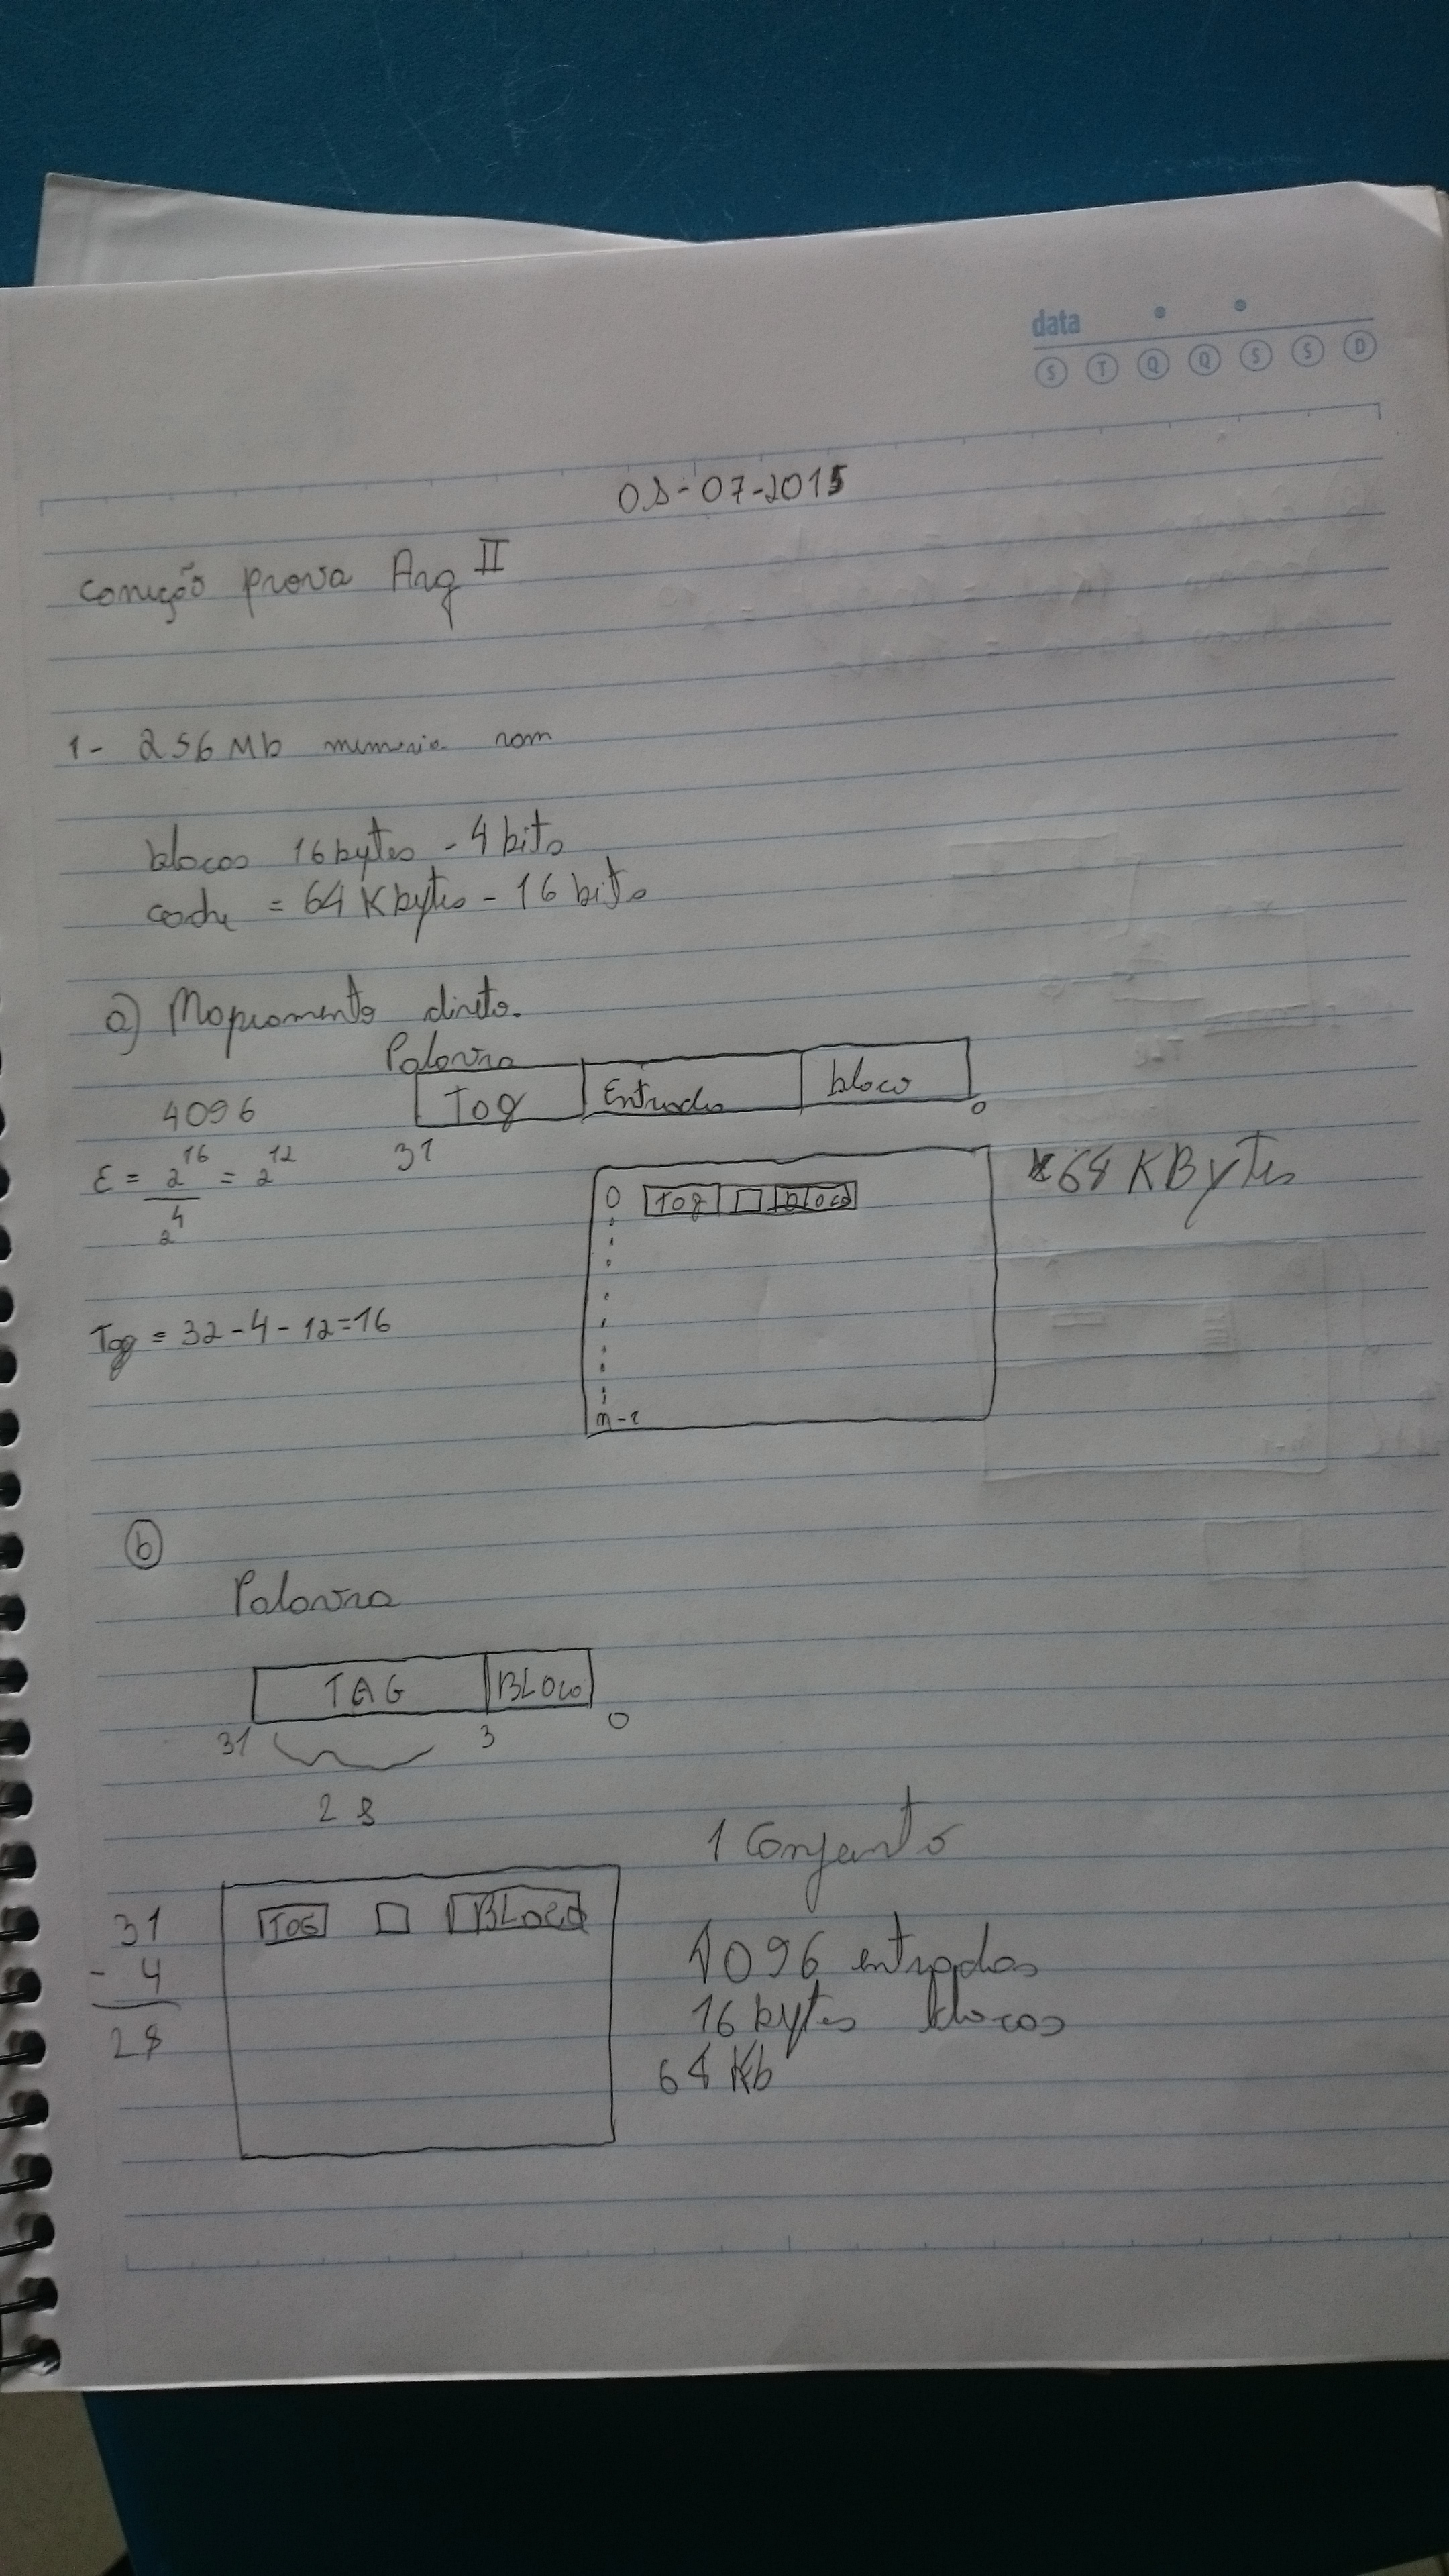 data
S T Q Q S S D
08-07-2015
correção prova Arq II
1- 256 Mb memoria ram
blocos 16 bytes - 4 bits
cache = 64 Kbytes - 16 bits
a) Mapeamento direto.
Palavra
Tag Entrada bloco
31 0
4096
E = 2^16 / 2^4 = 2^12
64 KBytes
0 Tag bloco
Tag = 32 - 4 - 12 = 16
n-1
b
Palavra
TAG BLOCO
31 3 0
28
1 Conjunto
TAG BLOCO
31
- 4
28
4096 entradas
16 bytes blocos
64 Kb